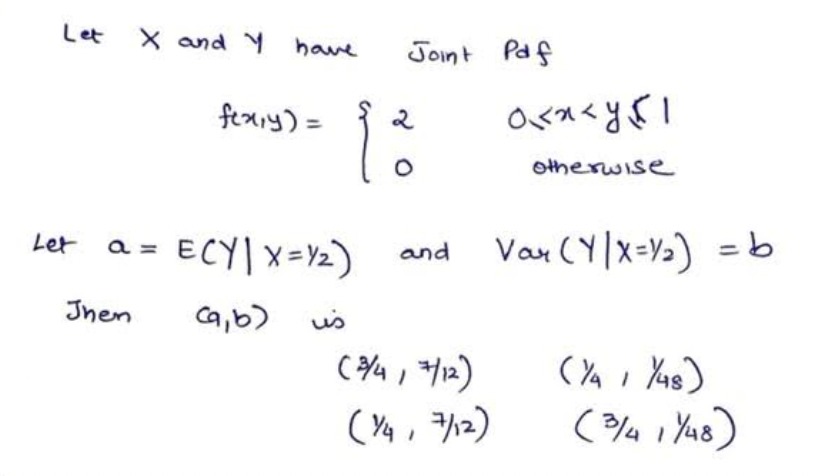 Let X and Y have Joint Pdf
f(x,y) = { 2 0≤x<y≤1
0 otherwise
Let a = E(Y|X=1/2) and Var(Y|X=1/2) = b
Then (a,b) is
(3/4, 7/12) (1/4, 1/48)
(1/4, 7/12) (3/4, 1/48)